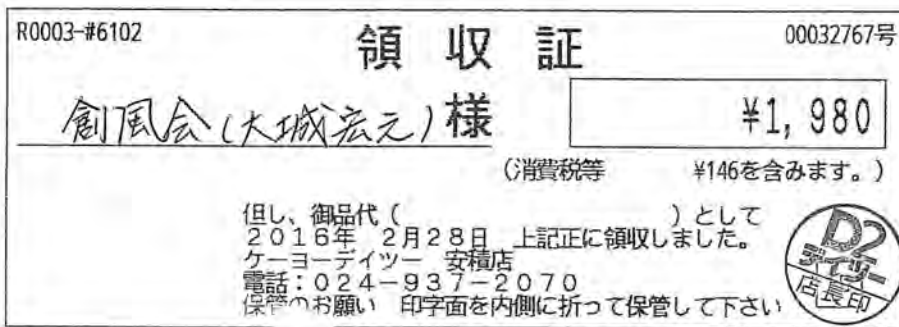 R0003-#6102
領収証
00032767号
創風会(大城宏元)様
¥1,980
(消費税等 ¥146を含みます。)
但し、御品代( )として
2016年 2月28日 上記正に領収しました。
ケーヨーデイツー 安積店
電話:024-937-2070
保管のお願い 印字面を内側に折って保管して下さい
D2
デイツー
店長印